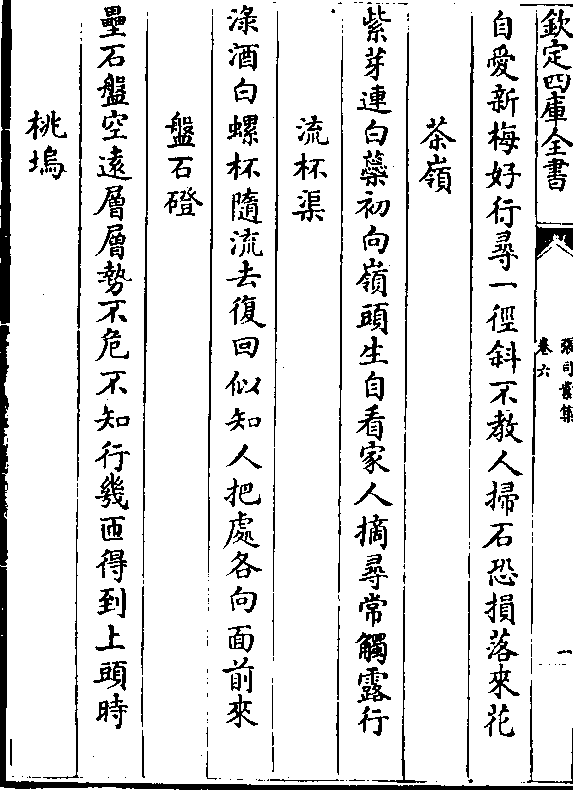 欽定四庫全書
張司業集
卷六
一
自愛新梅好行尋一徑斜不教人掃石恐損落來花
茶嶺
紫芽連白蘂初向嶺頭生自看家人摘尋常觸露行
流杯渠
淥酒白螺杯隨流去復回似知人把處各向面前來
盤石磴
壘石盤空遠層層勢不危不知行幾匝得到上頭時
桃塢